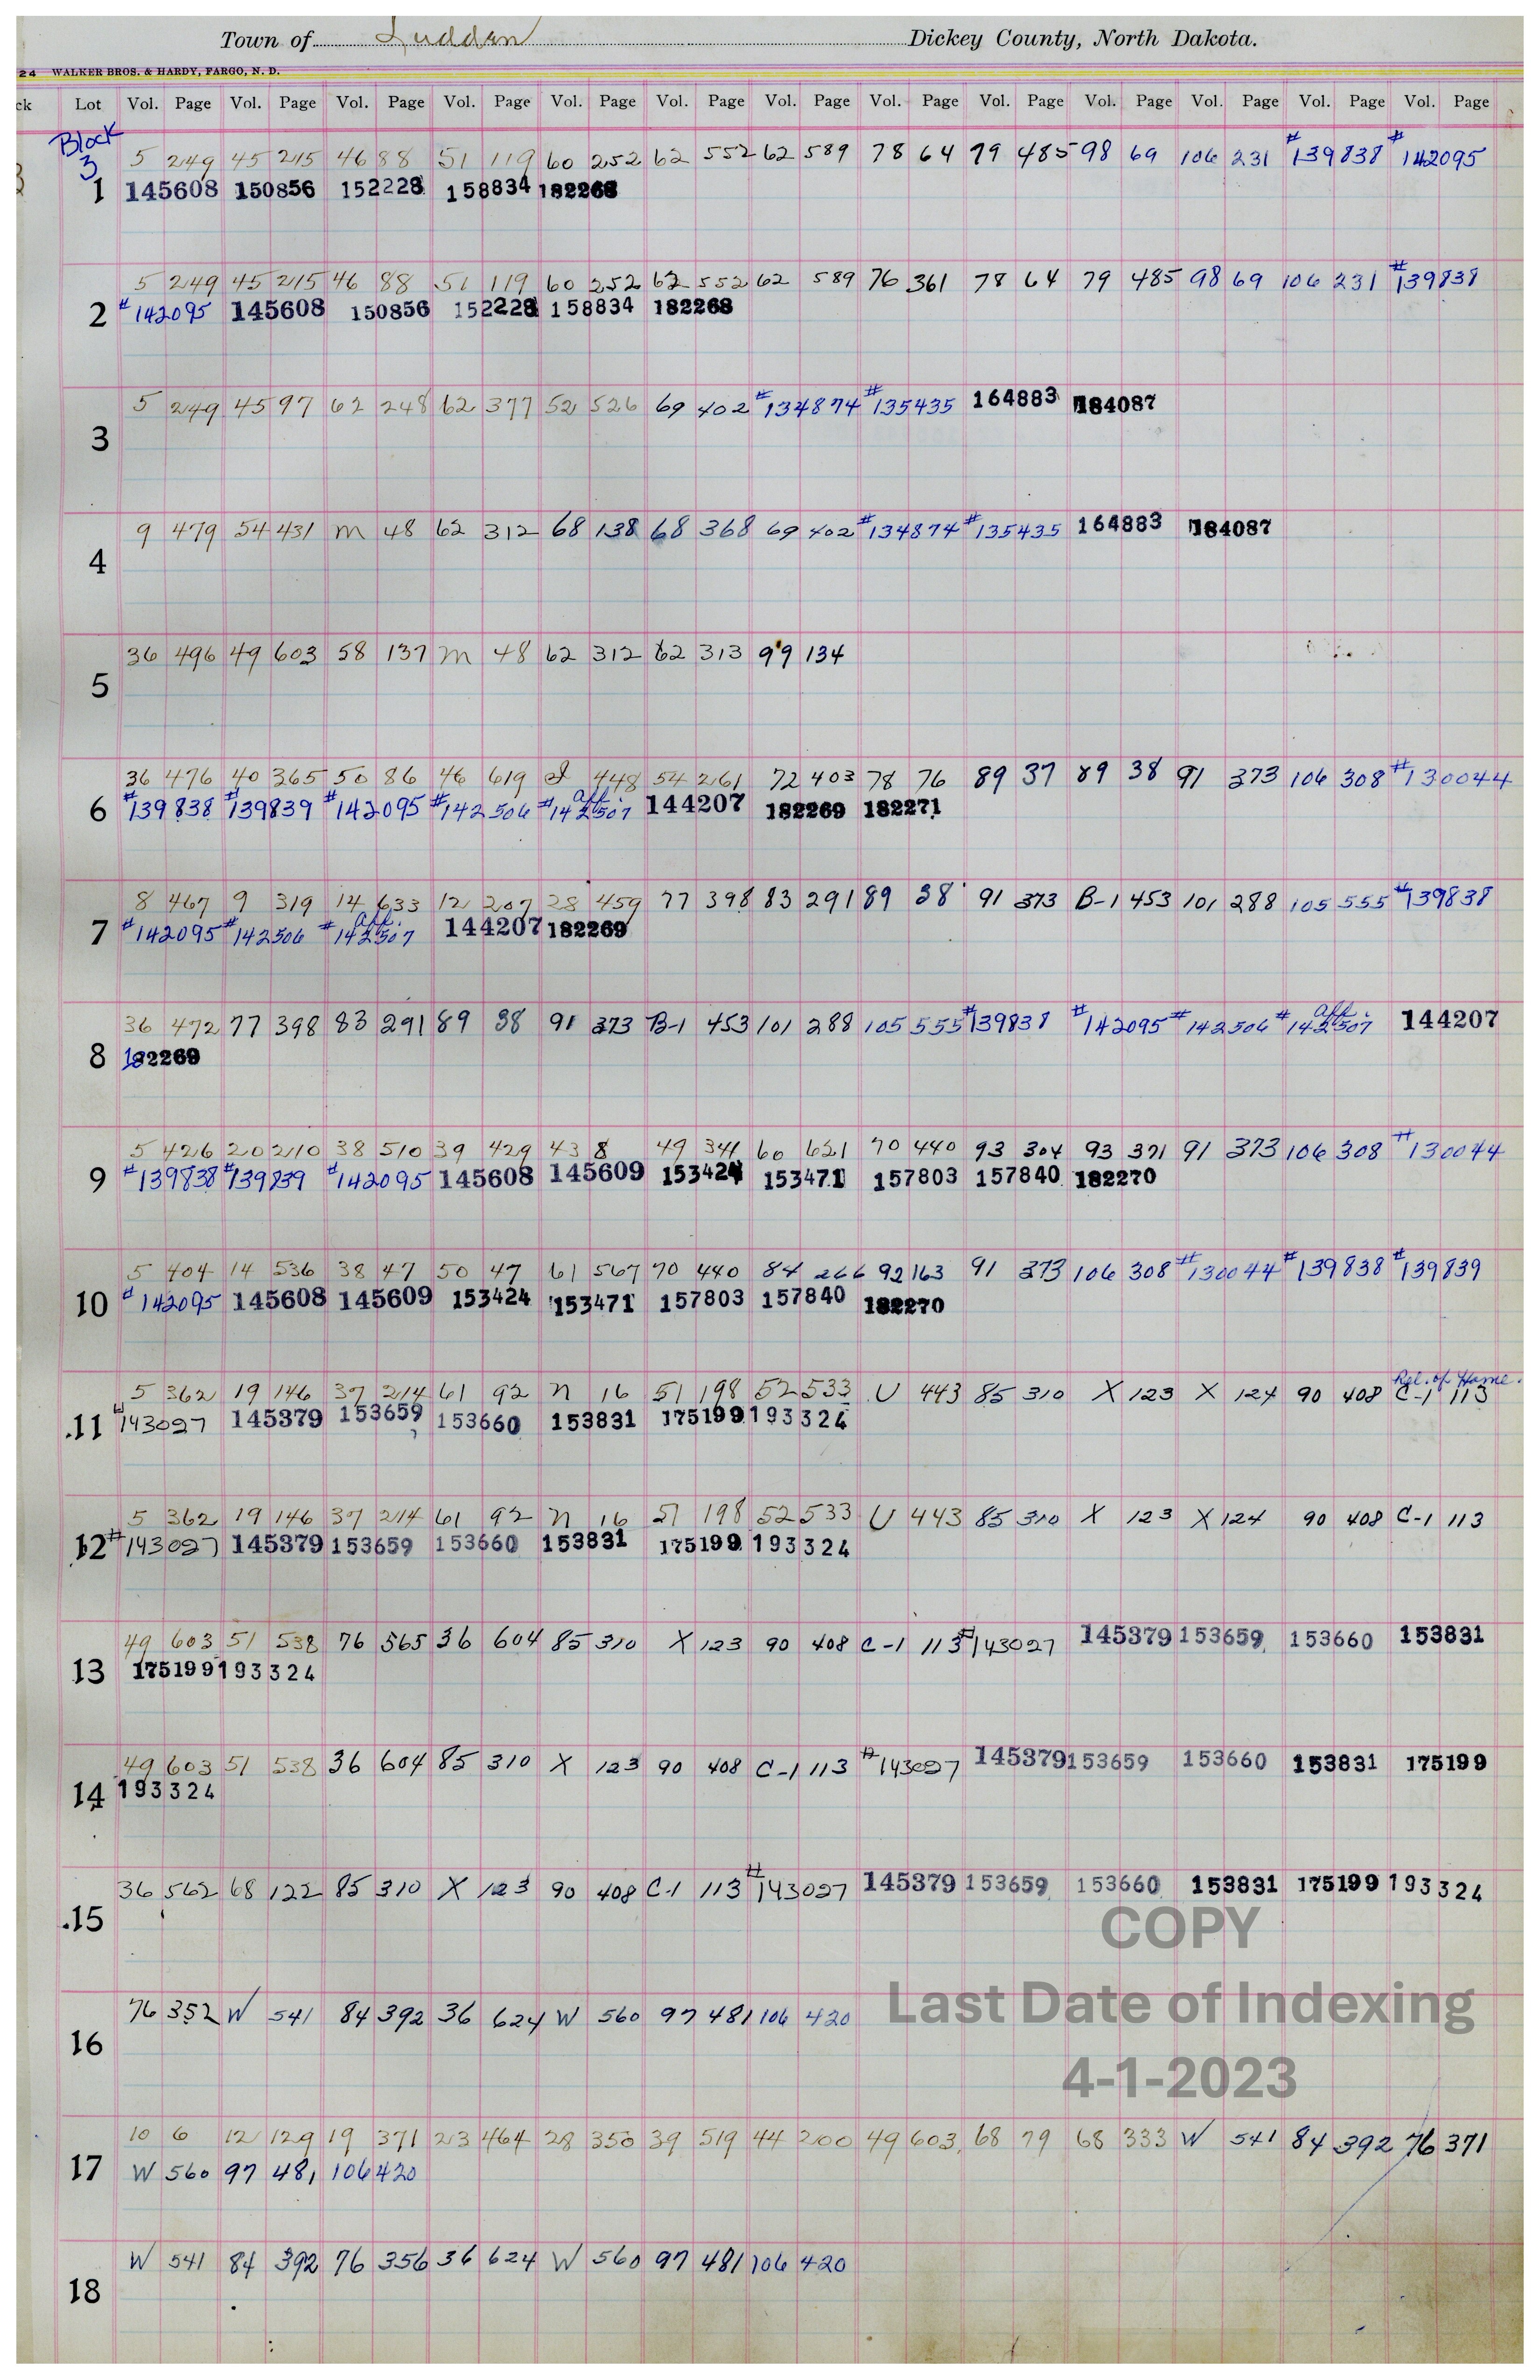 Town of Ludden Dickey County, North Dakota.
24 WALKER BROS. & HARDY, FARGO, N. D.
ck Lot Vol. Page Vol. Page Vol. Page Vol. Page Vol. Page Vol. Page Vol. Page Vol. Page Vol. Page Vol. Page Vol. Page Vol. Page Vol. Page
Block 3
5 249 45 215 46 88 51 119 60 252 62 552 62 589 78 64 79 485 98 69 106 231 #139838 #142095
1 145608 150856 152228 158834 182268
5 249 45 215 46 88 51 119 60 252 62 552 62 589 76 361 78 64 79 485 98 69 106 231 #139838
2 #142095 145608 150856 152228 158834 182268
5 249 45 97 62 248 62 377 52 526 69 402 #134874 #135435 164883 184087
3
9 479 54 431 M 48 62 312 68 138 68 368 69 402 #134874 #135435 164883 184087
4
36 496 49 603 58 137 M 48 62 312 62 313 99 134
5
36 476 40 365 50 86 46 619 448 54 261 72 403 78 76 89 37 89 38 91 373 106 308 #130044
6 #139838 #139839 #142095 #142506 #142507 aff. 144207 182269 182271
8 467 9 319 14 633 12 207 28 459 77 398 83 291 89 38 91 373 B-1 453 101 288 105 555 #139838
7 #142095 #142506 #142507 aff. 144207 182269
36 472 77 398 83 291 89 38 91 373 B-1 453 101 288 105 555 #139838 #142095 #142506 #142507 aff. 144207
8 182269
5 426 20 210 38 510 39 429 43 8 49 341 60 621 70 440 93 304 93 371 91 373 106 308 #130044
9 #139838 #139839 #142095 145608 145609 153424 153471 157803 157840 182270
5 404 14 536 38 47 50 47 61 567 70 440 84 266 92 163 91 373 106 308 #130044 #139838 #139839
10 #142095 145608 145609 153424 153471 157803 157840 182270
Rel. of Home.
5 362 19 146 37 214 61 92 N 16 51 198 52 533 U 443 85 310 X 123 X 124 90 408 C-1 113
11 #143027 145379 153659 153660 153831 175199 193324
5 362 19 146 37 214 61 92 N 16 51 198 52 533 U 443 85 310 X 123 X 124 90 408 C-1 113
12 #143027 145379 153659 153660 153831 175199 193324
49 603 51 538 76 565 36 604 85 310 X 123 90 408 C-1 113 #143027 145379 153659 153660 153831
13 175199 193324
49 603 51 538 36 604 85 310 X 123 90 408 C-1 113 #143027 145379 153659 153660 153831 175199
14 193324
36 562 68 122 85 310 X 123 90 408 C-1 113 #143027 145379 153659 153660 153831 175199 193324
15
COPY
76 352 W 541 84 392 36 624 W 560 97 481 106 420
16
Last Date of Indexing
4-1-2023
10 6 12 129 19 371 23 464 28 350 39 519 44 200 49 603 68 79 68 333 W 541 84 392 76 371
17 W 560 97 481 106 420
W 541 84 392 76 356 36 624 W 560 97 481 106 420
18